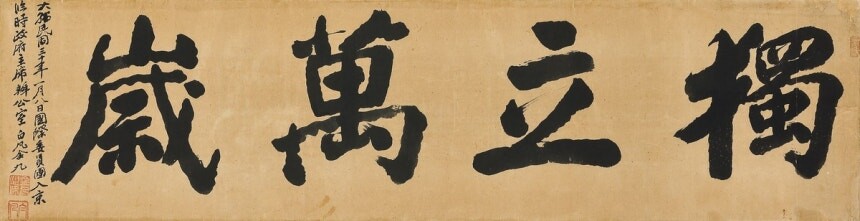 獨立萬嵗
大韓民国三十年一月八日國際委員團入京
臨時政府主席辦公室 白凡金九